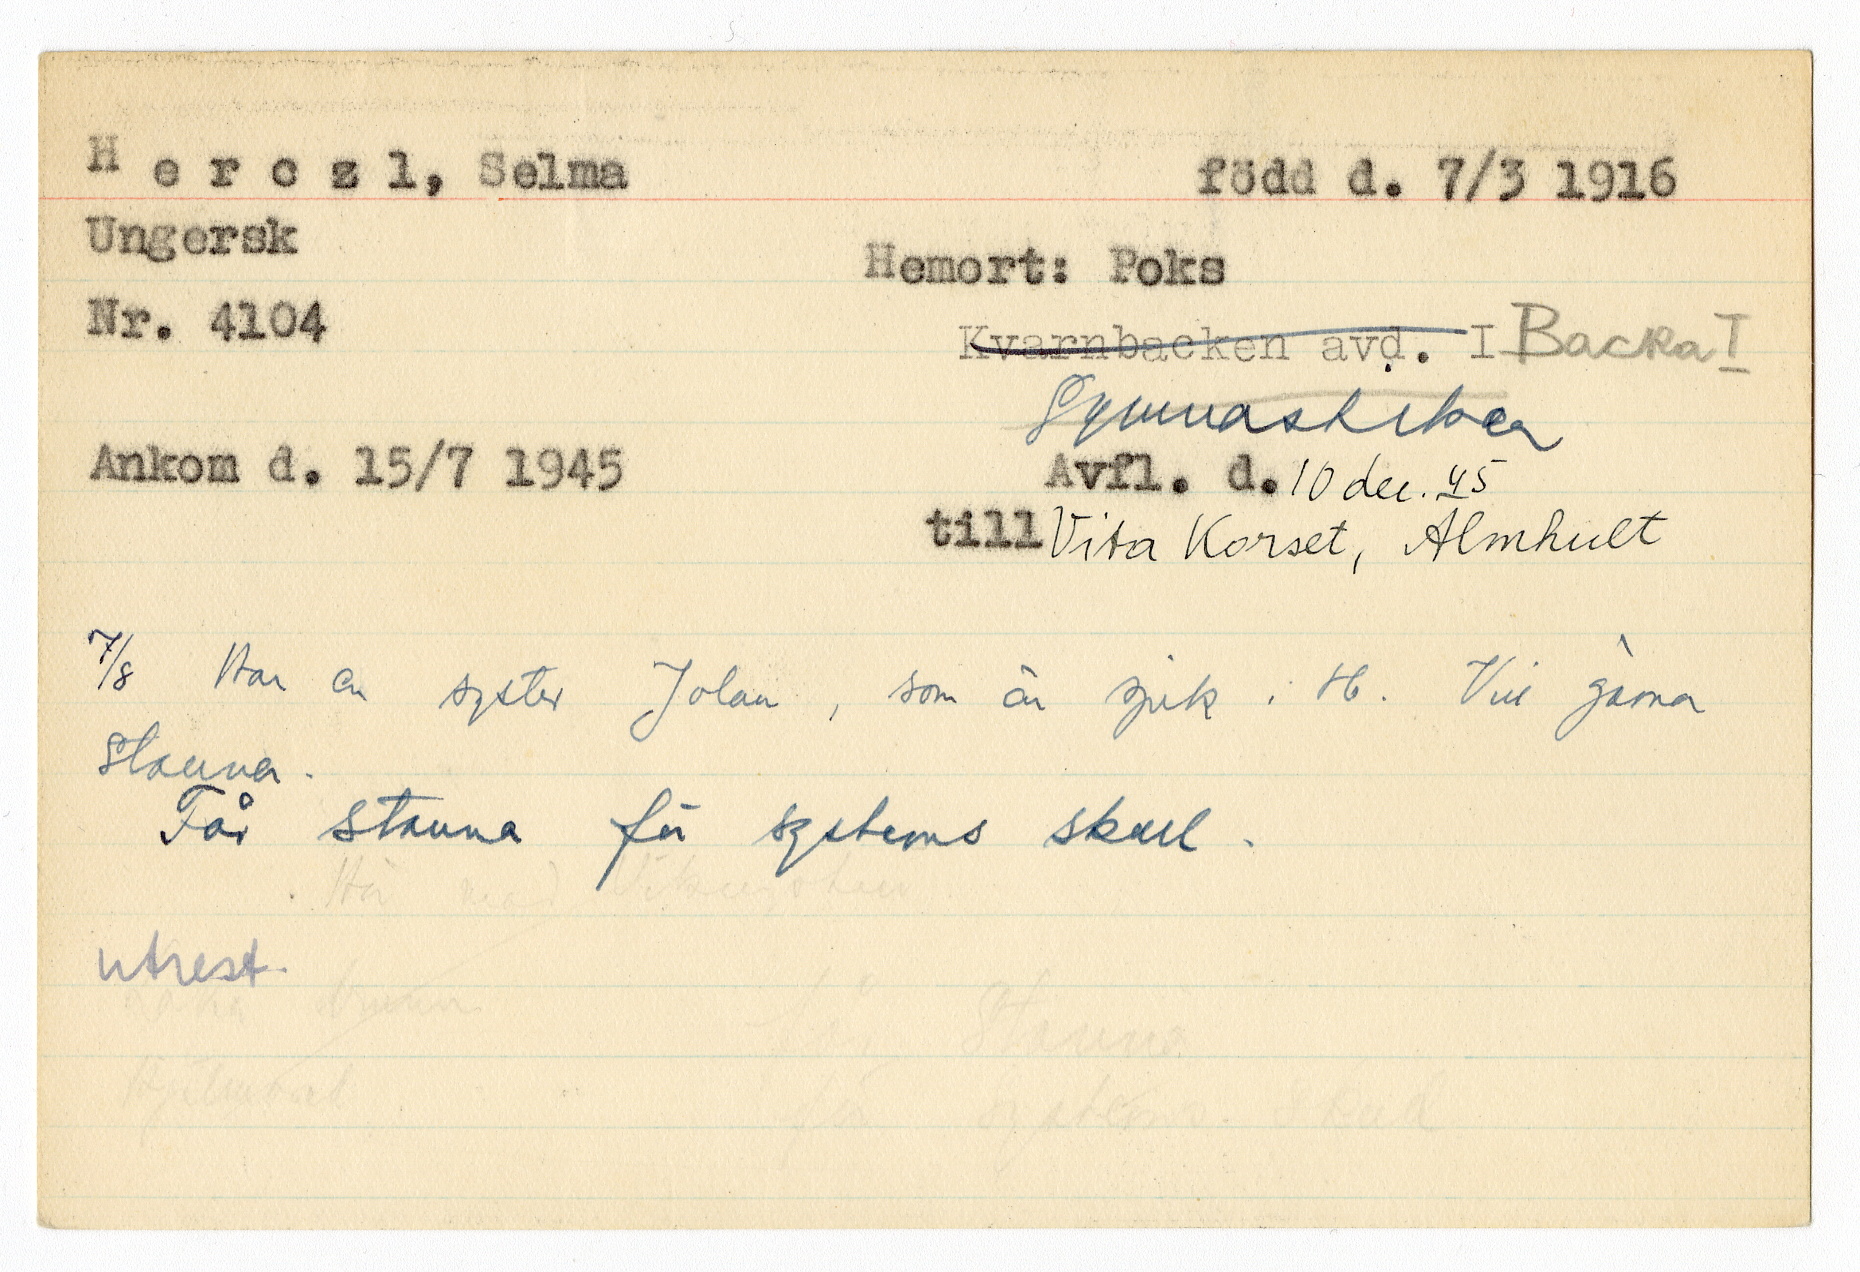 H e r c z l, Selma
född d. 7/3 1916
Ungersk
Hemort: Poks
Nr. 4104
Kvarnbacken avd. I Backa I
Gymnastiken
Ankom d. 15/7 1945
Avfl. d. 10 dec. 45
till Vita Korset, Älmhult
7/8 Har en syster Jolan, som är sjuk i H. Vill gärna
stanna.
Får stanna för systerns skull.
utrest.
får Stanna
för systerns skull